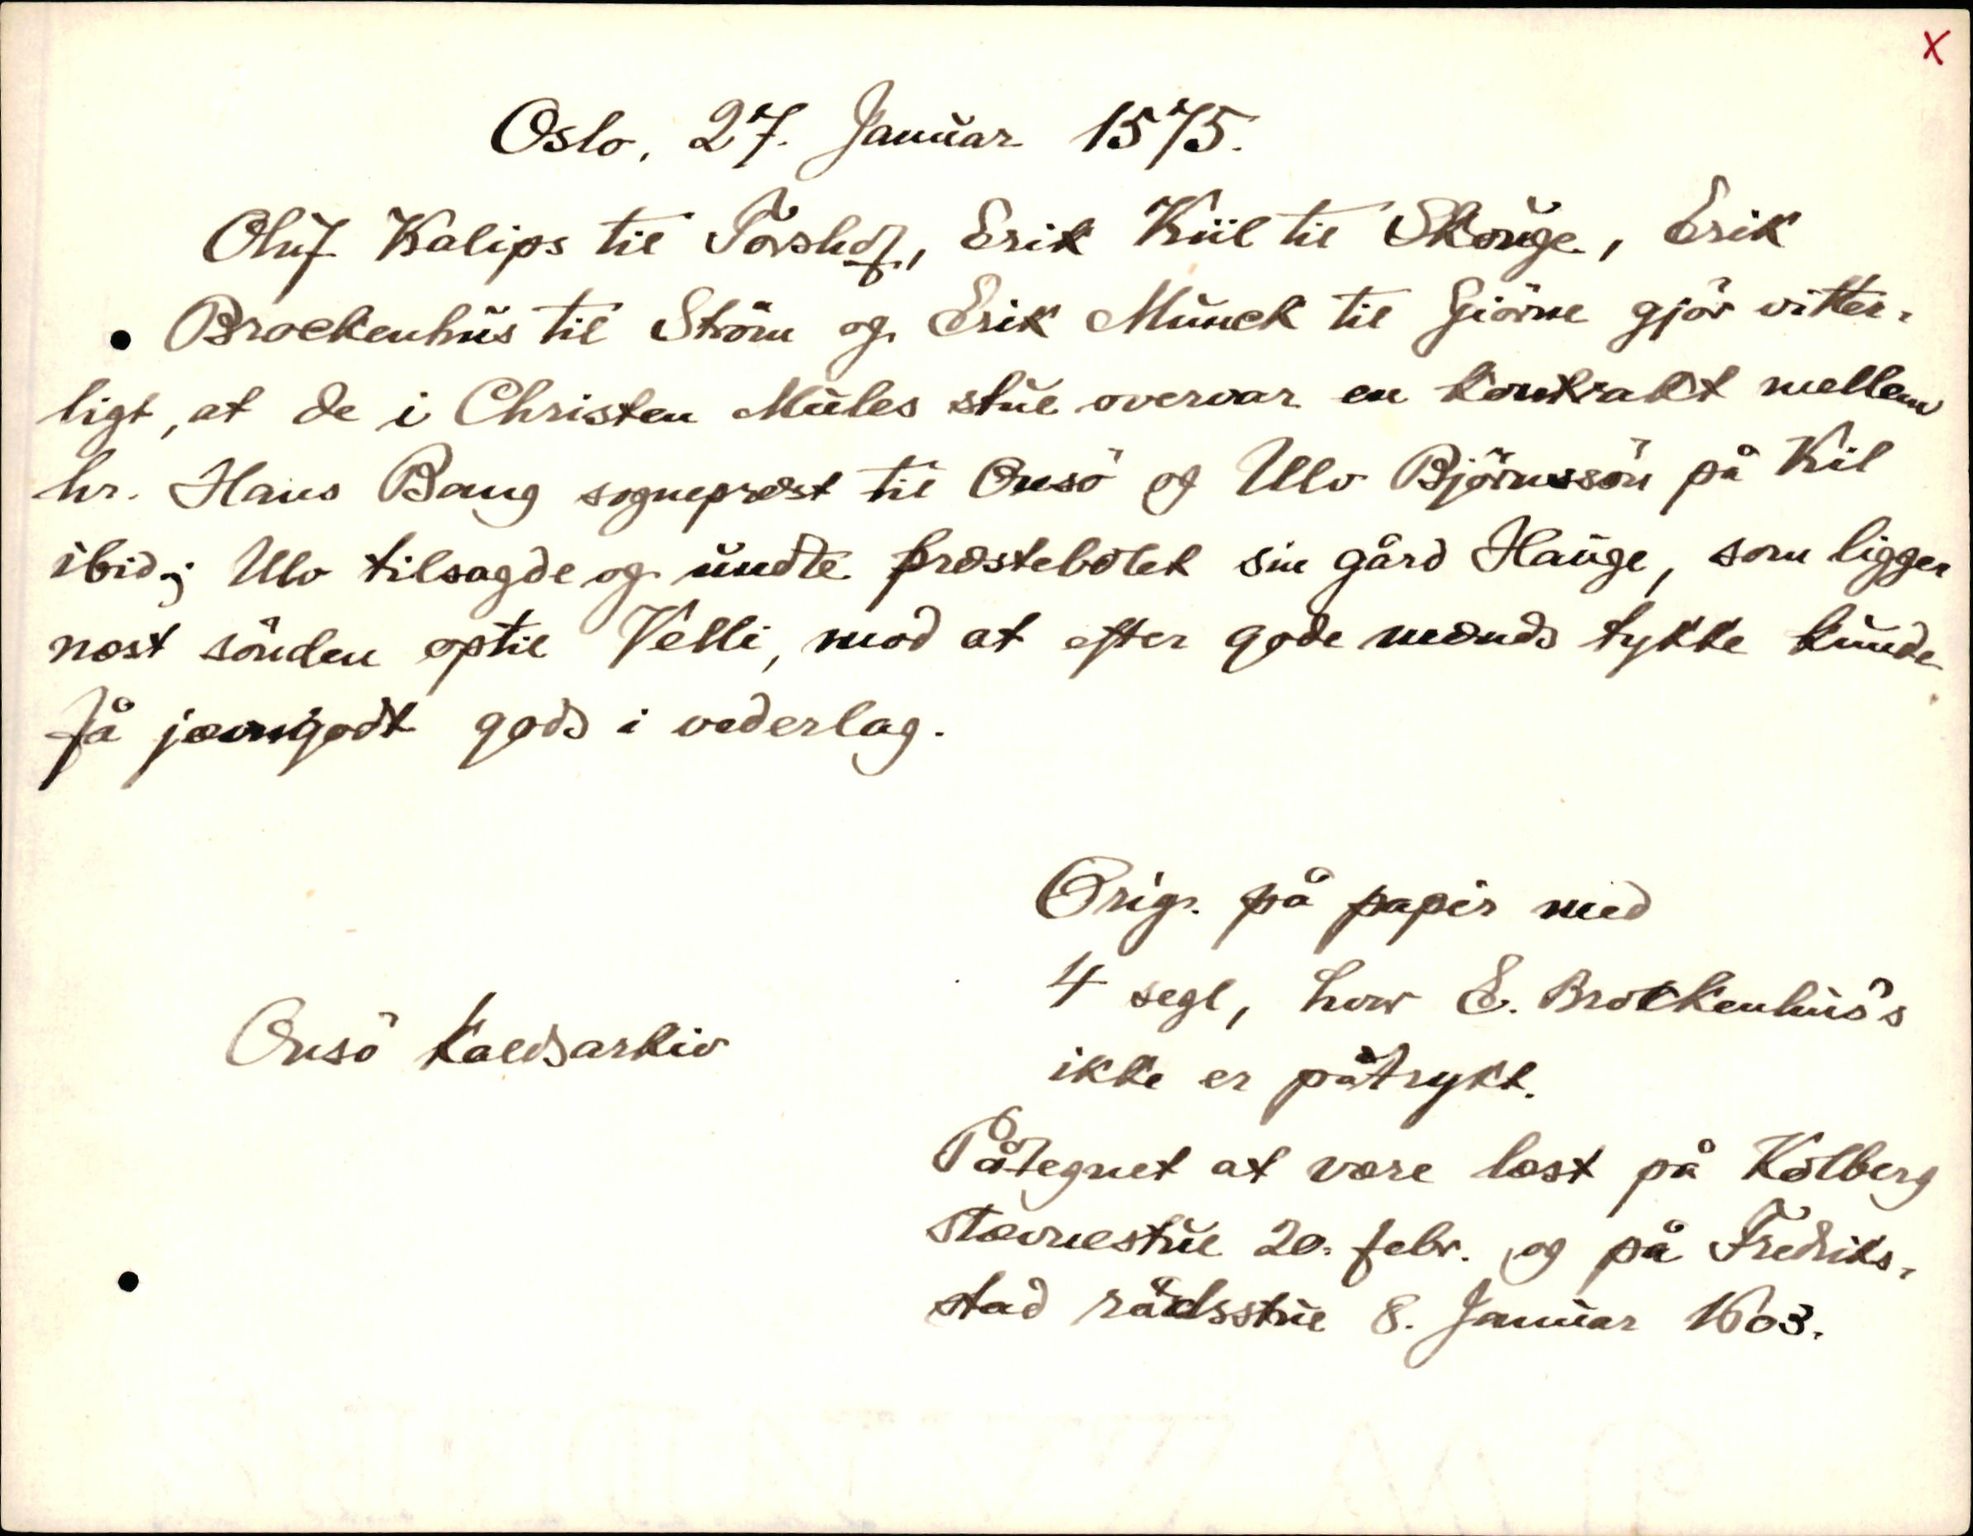 x
Oslo, 27. Januar 1575.
Oluf Kalips til Torshof, Erik Kiil til Skouge, Erik
Brockenhus til Ström og Erik Munck til Giörne gjör vitter-
ligt, at de i Christen Mules stue overvar en kontrakt mellem
hr. Hans Bang sogneprest til Onsö og Ulv Björnssön på Kil
ibid.; Ulv tilsagde og undte præstebolet sin gård Hauge, som ligger
næst sönden optil Velli, mod at efter gode mænds tykke kunde
få jævngodt gods i vederlag.
Orig. på papir med
4 segl, hvor E. Brockenhus's
ikke er påtrykt.
Onsö kaldsarkiv
Påtegnet at være læst på Kölberg
stævnestue 20. febr. og på Fredriks-
stad rådsstue 8. Januar 1603.